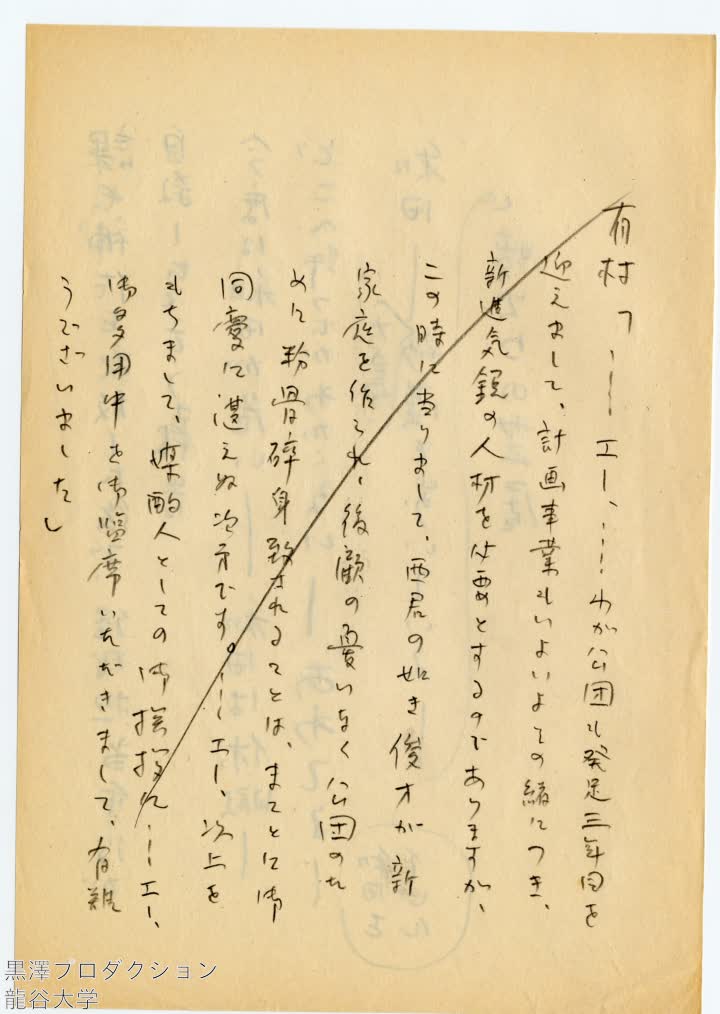 有村「……エー、……わが公団も発足三年目を
迎えまして、計画事業もいよいよその緒につき、
新進気鋭の人材を必要とするのでありますが、
この時に当りまして、西君の如き俊才が新
家庭を作られ、後顧の憂いなく公団のた
めに粉骨砕身致されることは、まことに御
同慶に堪えぬ次第です。……エー、以上を
もちまして、媒酌人としての御挨拶に……エー、
御多用中を御臨席いただきまして、有難
うございました」
黒澤プロダクション
龍谷大学